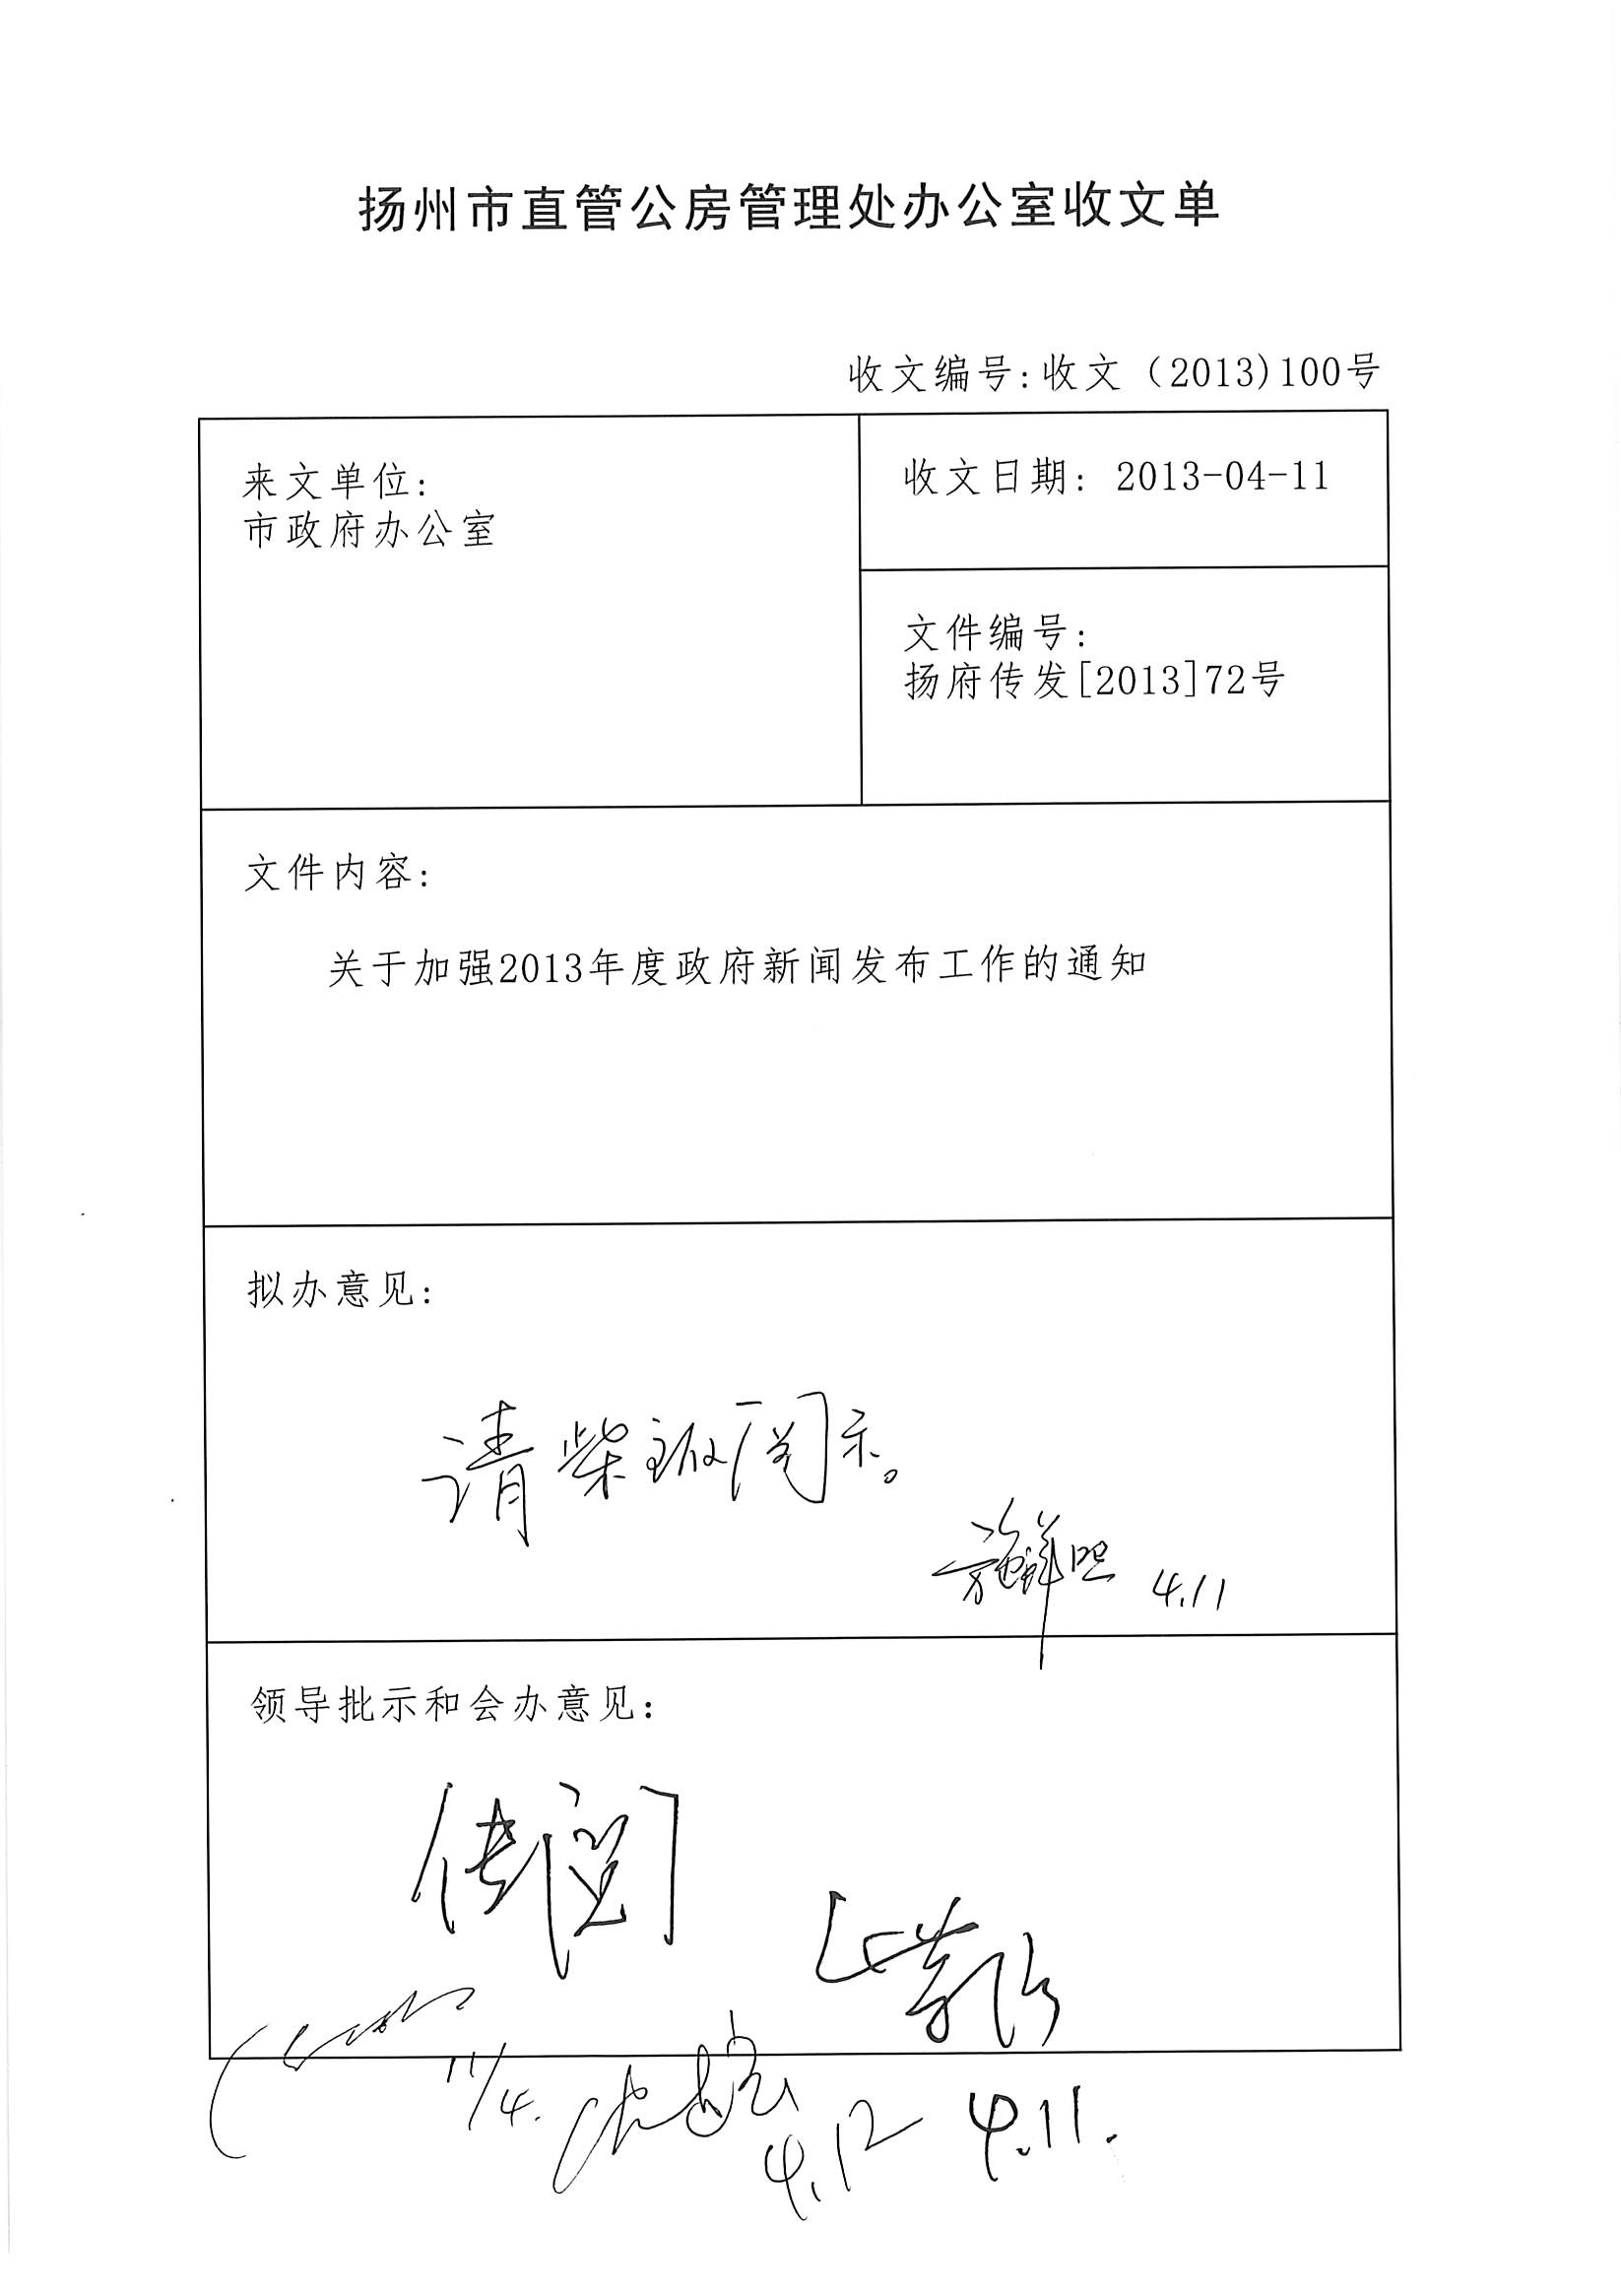 扬州市直管公房管理处办公室收文单
收文编号:收文（2013)100号
来文单位:
市政府办公室
收文日期: 2013-04-11
文件编号:
扬府传发[2013]72号
文件内容:
关于加强2013年度政府新闻发布工作的通知
拟办意见:
请柴 阅示。
4.11
领导批示和会办意见:
传阅
11/4.
4.12
4.11.